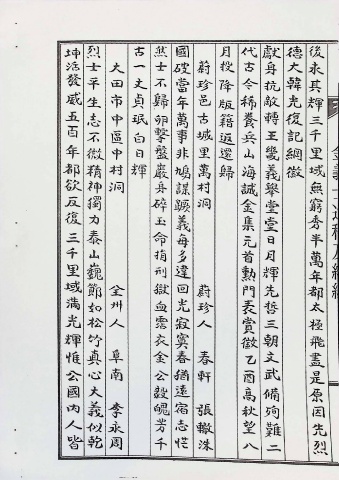 後永其輝三千里域無窮秀半萬年都太極飛盡是原因先烈
德大韓光復記綱徽
獻身抗敵轉王幾義擧堂堂日月輝先哲三朝文武備殉難二
代古今稀養兵山海誠金集元首勳門表賞徽乙酉高秋望八
月授降版籍返還歸
蔚珍邑古城里萬村洞 蔚珍人 春軒 張轍洙
國破當年萬事非鳩謀蹶義每多違回光寂寞春猶遠宿志恾
然士不歸卯擊盤巖身碎玉命捐刑獄血霑衣金公毅魄芳千
古一丈貞珉白日輝
大田市中區中村洞 全州人 阜南 李永周
烈士平生志不微精神獨力泰山巍節如松竹真心大義似乾
坤活發威五百年都欲反復三千里域滿光輝惟公國內人皆